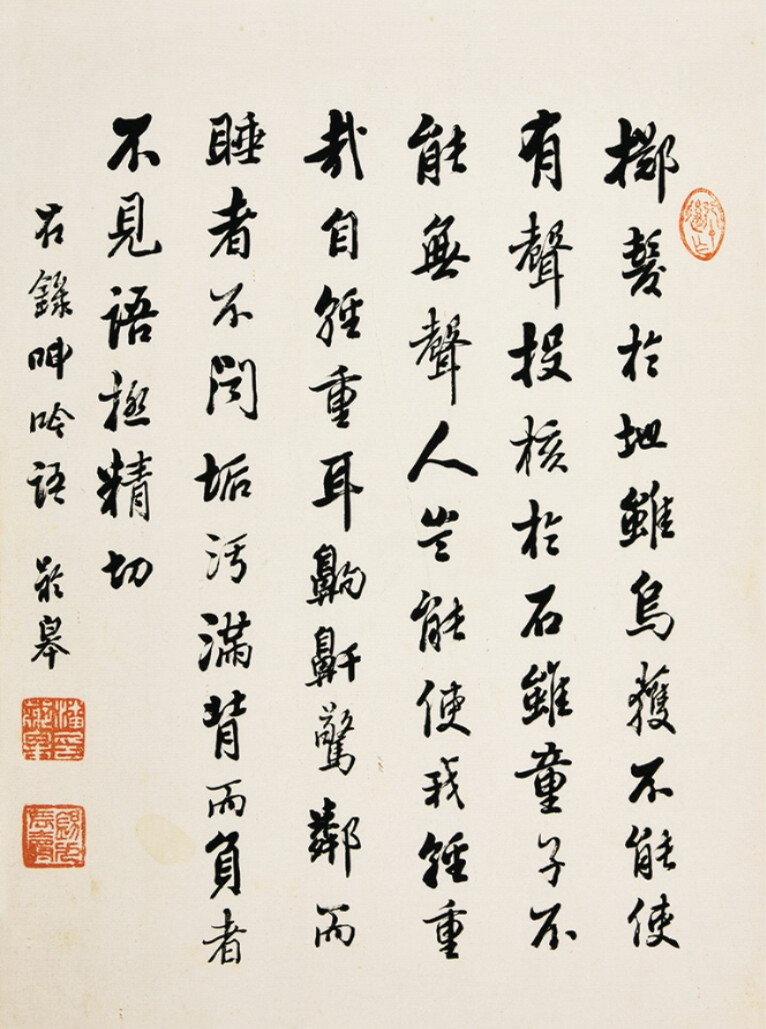 擲髮於地雖烏獲不能使
有聲投核於石雖童子不
能無聲人豈能使我輕重
哉自輕重耳齁鼾驚鄰而
睡者不聞垢污滿背而負者
不見語極精切
右錄呻吟語 齡皋
潘印齡皋